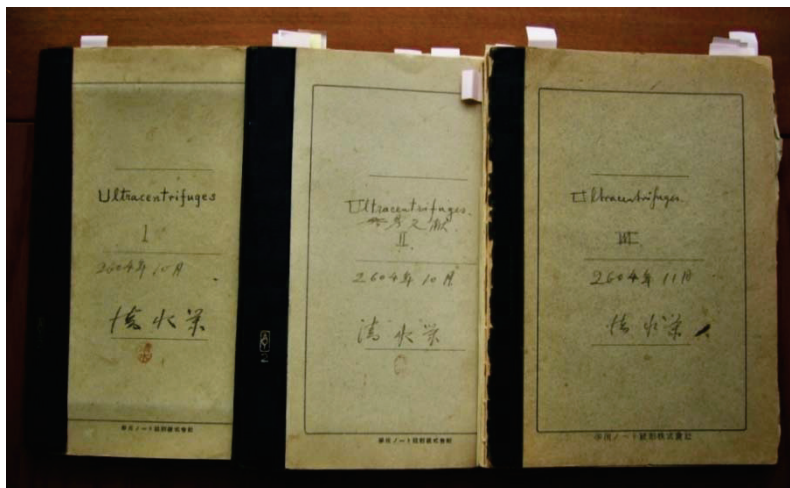 Ultracentrifuges
I
2604年10月
清水栄
Ultracentrifuges.
参考文献
II.
2604年10月
清水栄
Ultracentrifuges.
III.
2604年11月
清水栄